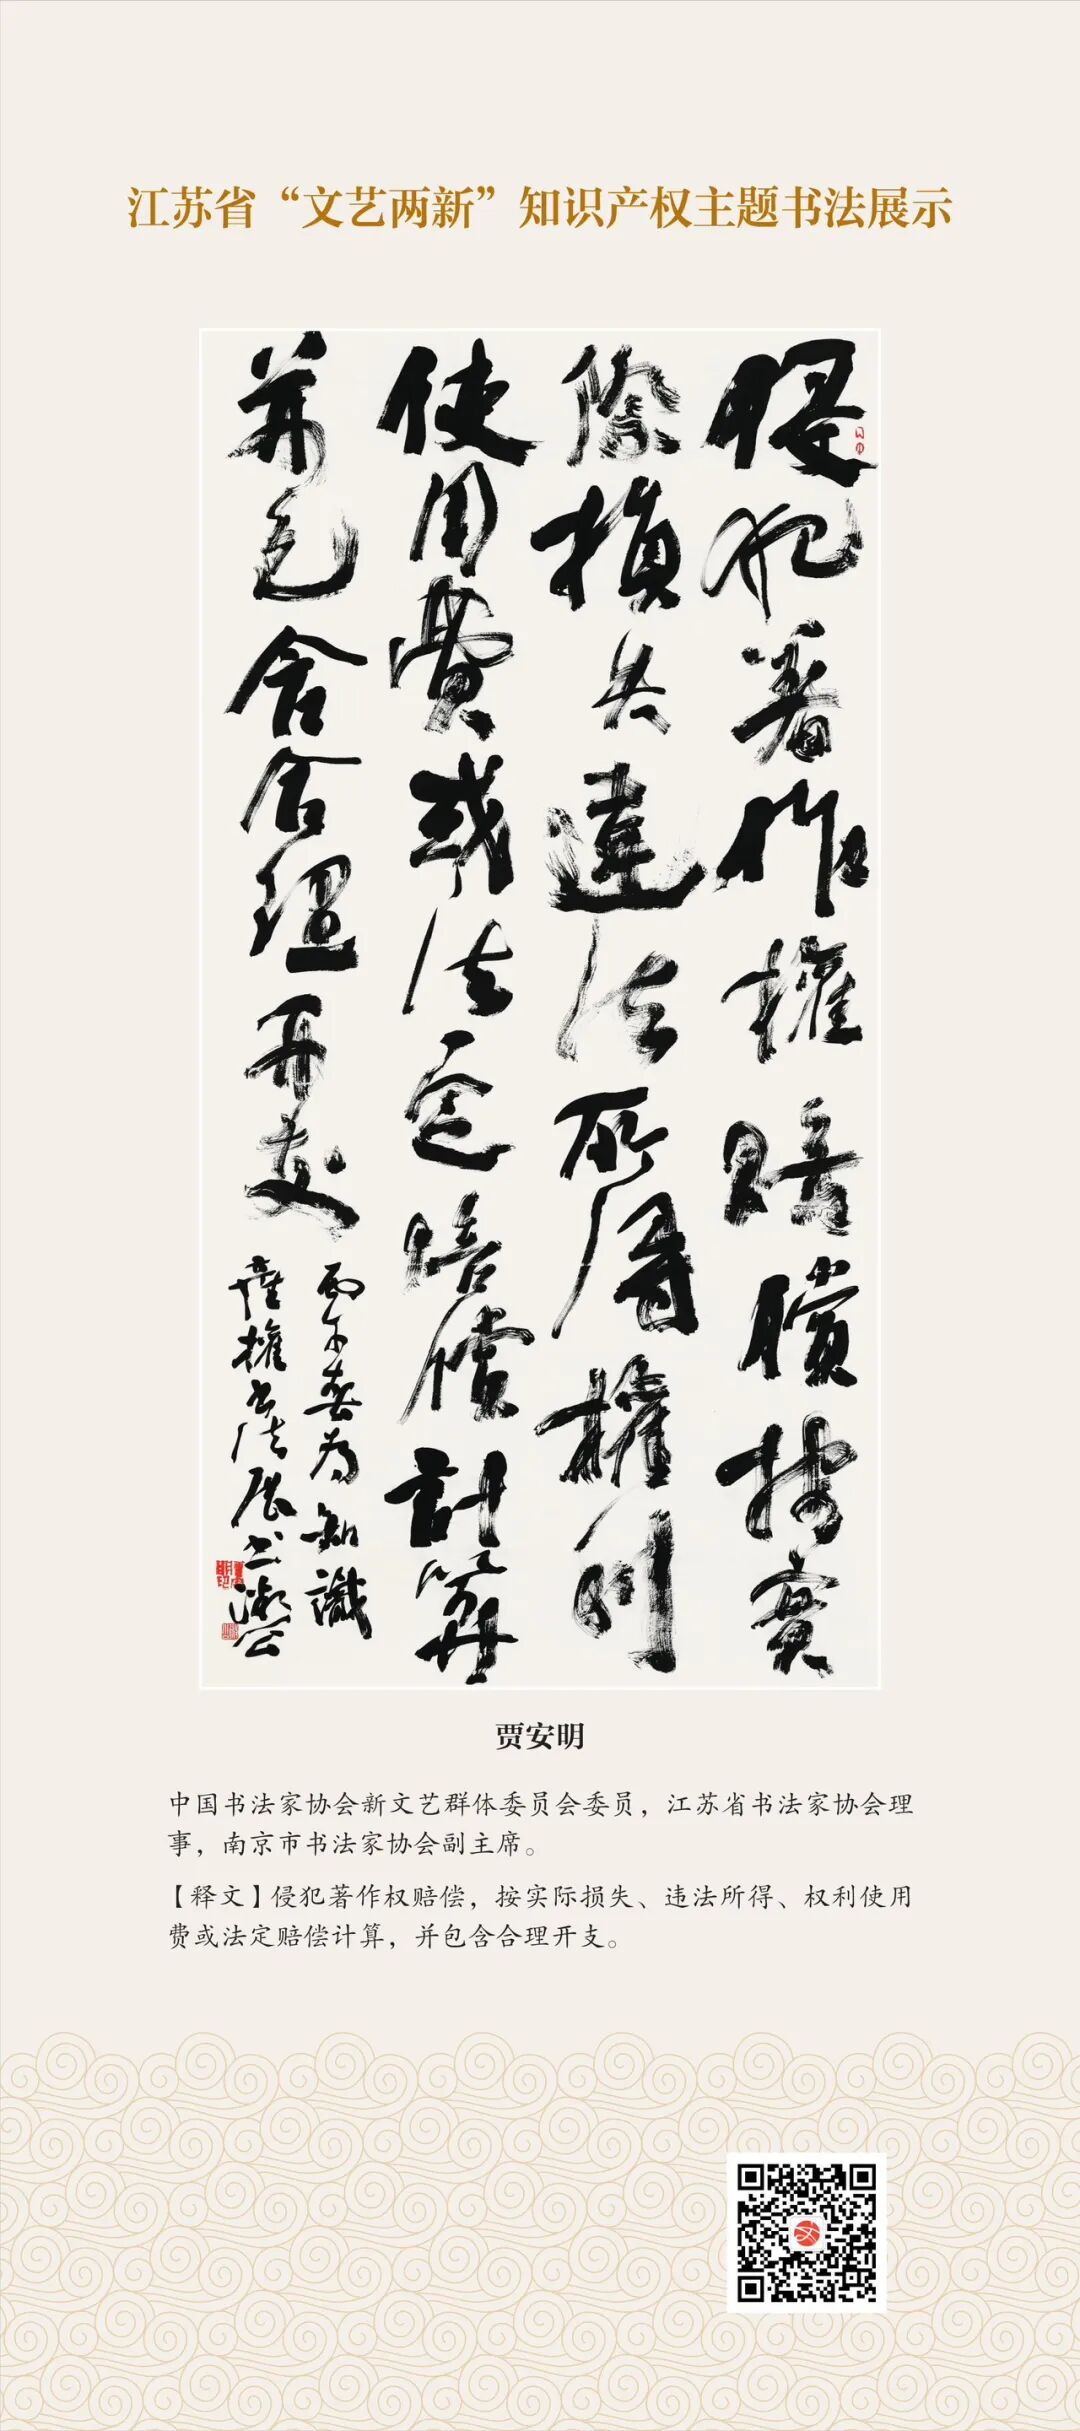 江苏省“文艺两新”知识产权主题书法展示
侵犯著作權賠償按實
際損失違法所得權利
使用費或法定賠償計算
并包含合理開支
丙午春为知識
產權书法展书
贾安明
中国书法家协会新文艺群体委员会委员，江苏省书法家协会理
事，南京市书法家协会副主席。
【释文】侵犯著作权赔偿，按实际损失、违法所得、权利使用
费或法定赔偿计算，并包含合理开支。